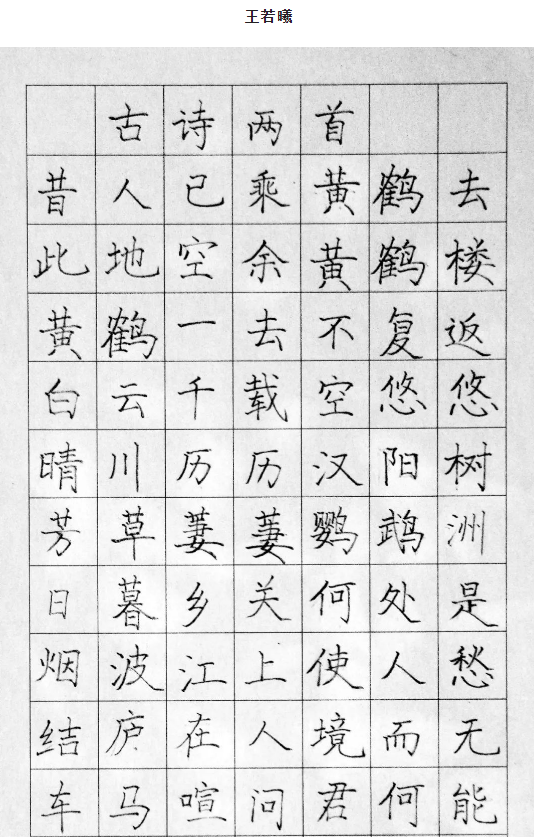 王若曦
古诗两首
昔人已乘黄鹤去
此地空余黄鹤楼
黄鹤一去不复返
白云千载空悠悠
晴川历历汉阳树
芳草萋萋鹦鹉洲
日暮乡关何处是
烟波江上使人愁
结庐在人境而无
车马喧问君何能